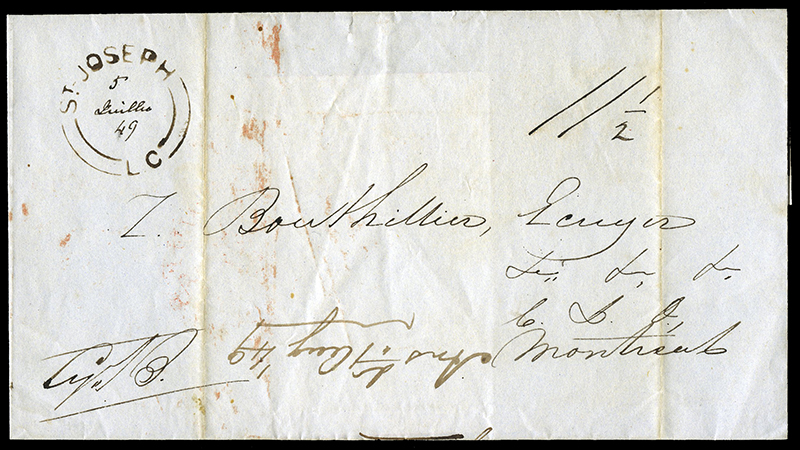 ST. JOSEPH
5
Juillet
49
L C
11 1/2
T. Bouthillier, Ecuyer
&c. &c. &c.
C. L. O,
Montreal
Aug 49